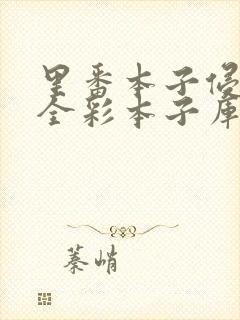 里番本子侵
全彩本子库
蓁峭